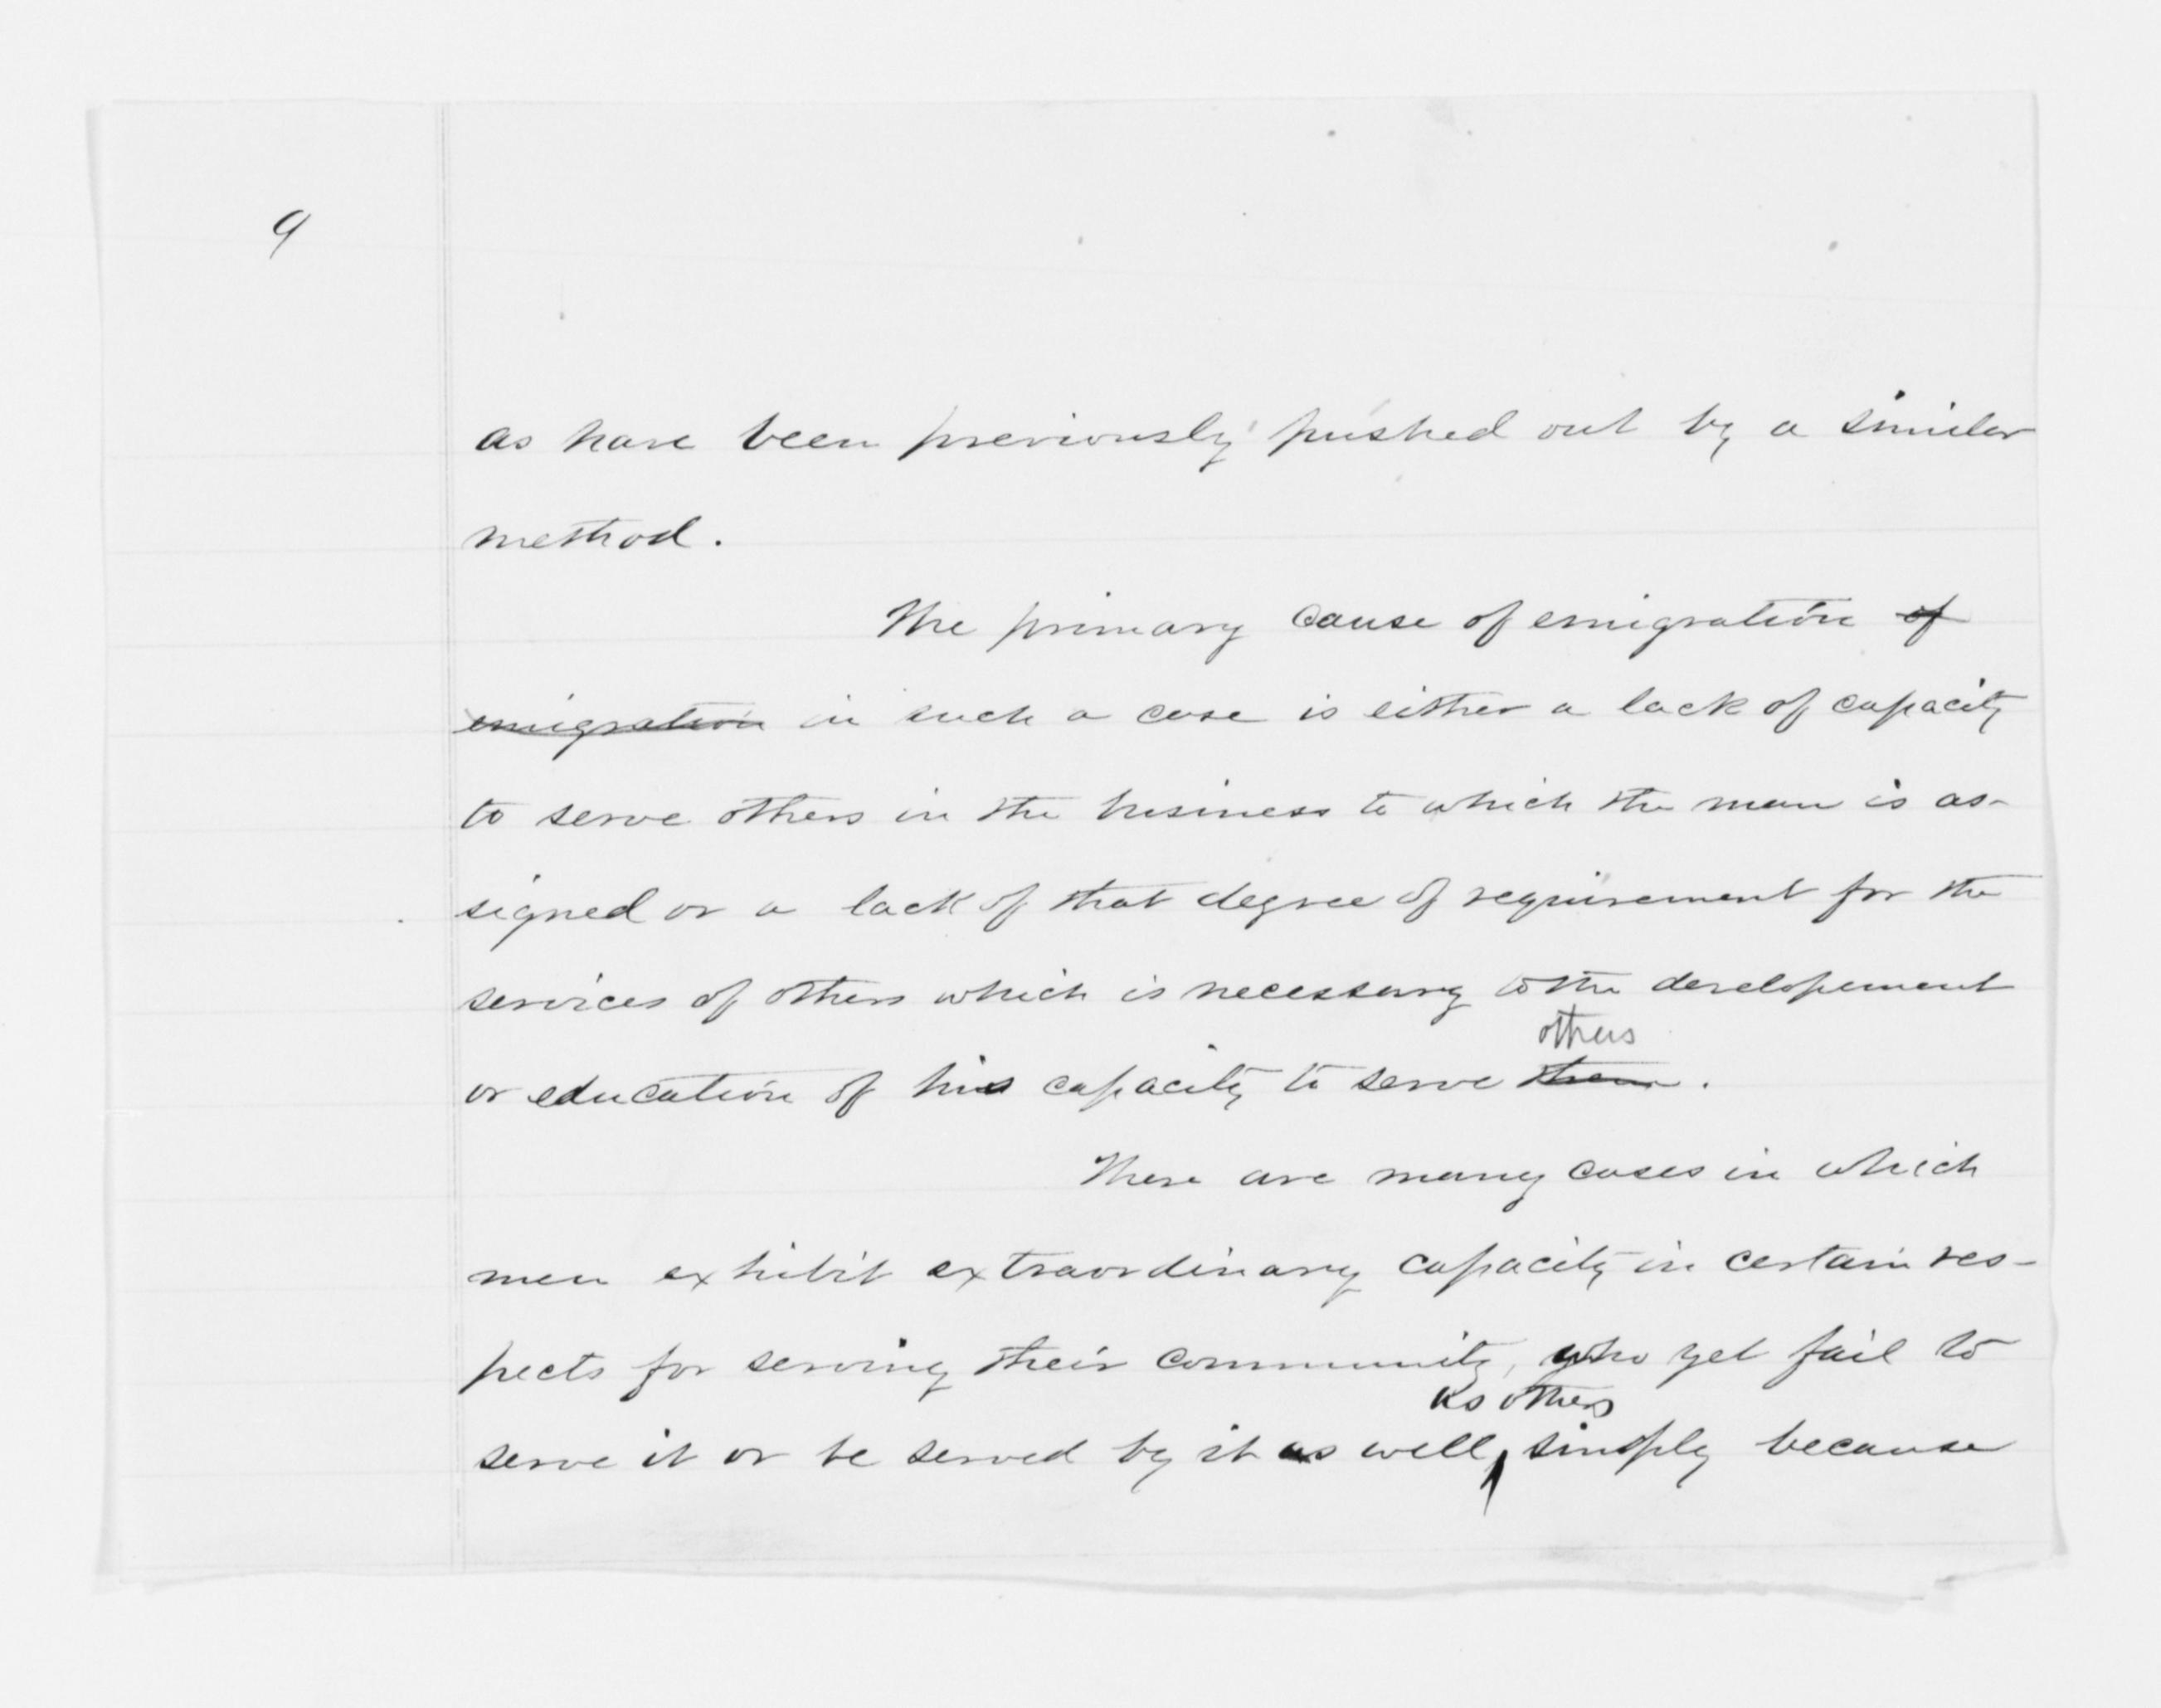 9
as have been previously pushed out by a similar
method.
The primary cause of emigration of
emigration in such a case is either a lack of capacity
to serve others in the business to which the man is as-
signed or a lack of that degree of requirement for the
services of others which is necessary to the developement
others
or education of his capacity to serve them.
There are many cases in which
men exhibit extraordinary capacity in certain res-
pects for serving their community, who yet fail to
as others
serve it or be served by it as well, simply because